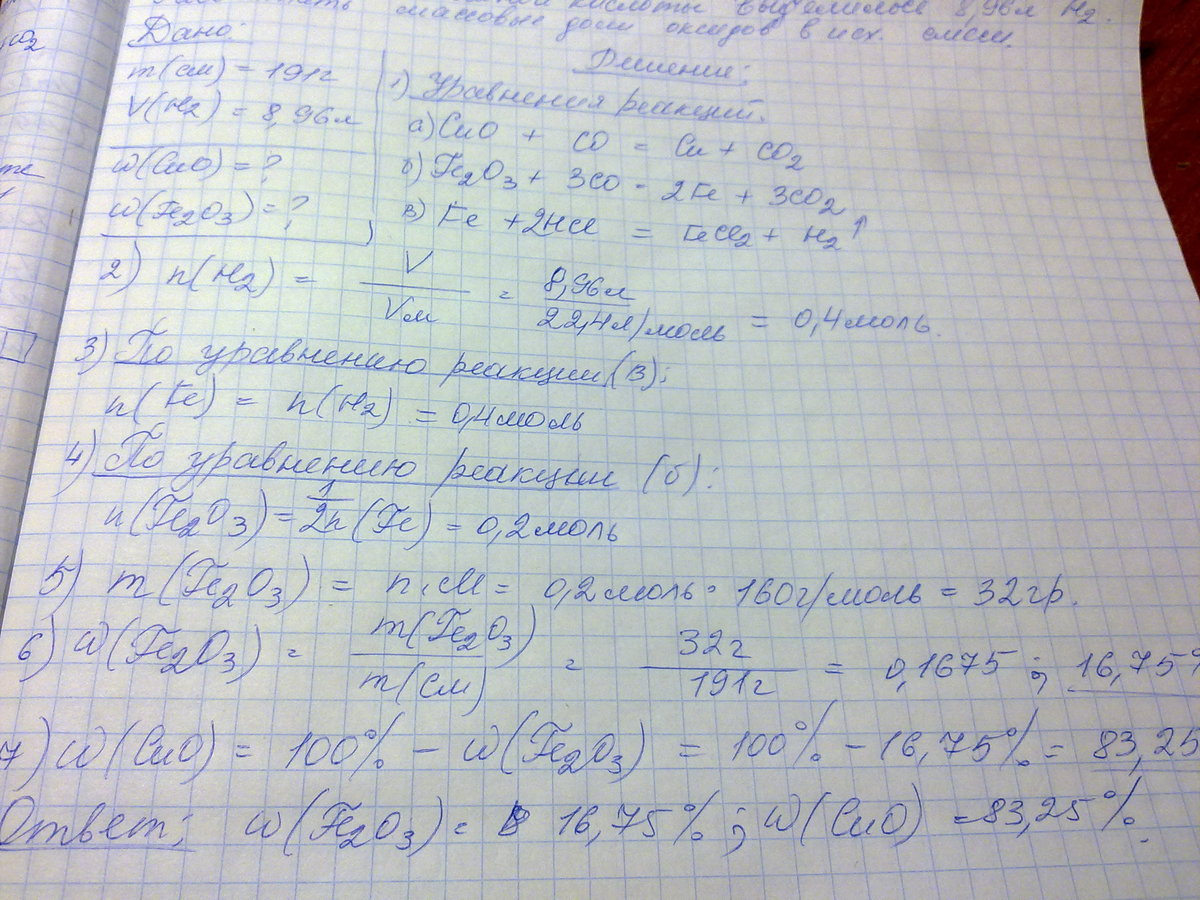 кислоты выделилось 8,96л H₂.
массовые доли оксидов в исх. смеси.
CO₂
Дано:
m(см) = 191г
V(H₂) = 8,96л
w(CuO) = ?
w(Fe₂O₃) = ?
Решение:
1) Уравнения реакций.
а) CuO + CO = Cu + CO₂
б) Fe₂O₃ + 3CO = 2Fe + 3CO₂
в) Fe + 2HCl = FeCl₂ + H₂↑
2) n(H₂) = V / Vм = 8,96л / 22,4л/моль = 0,4моль.
3) По уравнению реакции (в):
n(Fe) = n(H₂) = 0,4моль
4) По уравнению реакции (б):
n(Fe₂O₃) = 1/2n(Fe) = 0,2моль
5) m(Fe₂O₃) = n·M = 0,2моль · 160г/моль = 32гр.
6) W(Fe₂O₃) = m(Fe₂O₃) / m(см) = 32г / 191г = 0,1675 ; 16,75%
7) W(CuO) = 100% - W(Fe₂O₃) = 100% - 16,75% = 83,25
Ответ: W(Fe₂O₃) = 16,75% ; W(CuO) = 83,25%.